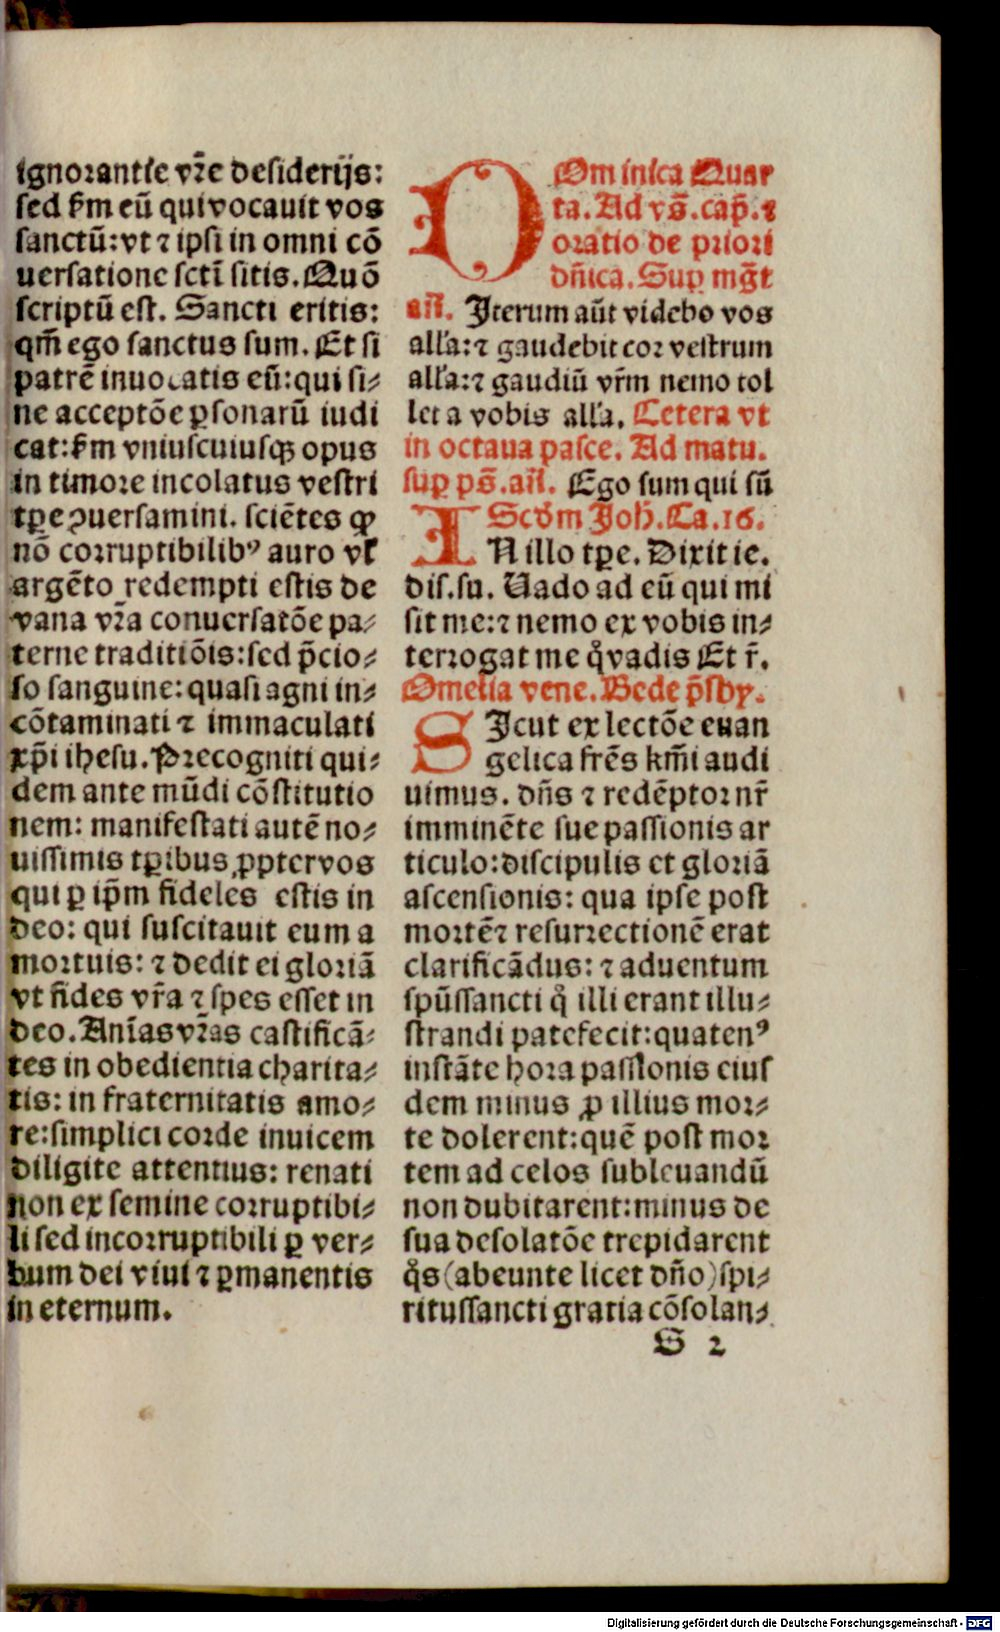 ignorantie vr̃e desiderijs:
sed km̃ eū qui vocauit vos
sanctū: vt ⁊ ipsi in omni cō
uersatione sctī sitis. Quō
scriptū est. Sancti eritis:
qm̃ ego sanctus sum. Et si
patrē inuocatis eū: qui si⸗
ne acceptōe ꝑsonarū iudi
cat: km̃ vniuscuiusqꝫ opus
in timore incolatus vestri
tꝑe ꝯuersamini. sciētes ꝙ
nō corruptibilibꝰ auro vł
argēto redempti estis de
vana vr̃a conuersatōe pa⸗
terne traditiōis: sed p̄cio⸗
so sanguine: quasi agni in⸗
cōtaminati ⁊ immaculati
xp̄i ihesu. Precogniti qui⸗
dem ante mūdi cōstitutio
nem: manifestati autē no⸗
uissimis tꝑibus ꝓpter vos
qui ꝑ ip̄m fideles estis in
deo: qui suscitauit eum a
mortuis: ⁊ dedit ei gloriā
vt fides vr̃a ⁊ spes esset in
deo. Anīas vr̃as castificā⸗
tes in obedientia charita⸗
tis: in fraternitatis amo⸗
re: simplici corde inuicem
diligite attentius: renati
non ex semine corruptibi⸗
li sed incorruptibili ꝑ ver⸗
bum dei viui ⁊ ꝑmanentis
in eternum.
DOminica Quar
ta. Ad vs̄. cap̄. ⁊
oratio de priori
dn̄ica. Suꝑ mg̅t
an̄. Iterum aūt videbo vos
alľa: ⁊ gaudebit cor vestrum
alľa: ⁊ gaudiū vr̄m nemo tol
let a vobis alľa. Cetera vt
in octaua pasce. Ad matu.
suꝑ ps̄. an̄. Ego sum qui sū
Scd̄m Joh̄. Ca. 16.
IN illo tꝑe. Dixit ie.
dis. su. Uado ad eū qui mi
sit me: ⁊ nemo ex vobis in⸗
terrogat me qͦ vadis Et r̄.
Omelia vene. Bede p̄sby.
SIcut ex lectōe euan
gelica frēs km̄i audi
uimus. dn̄s ⁊ redēptor nr̄
imminēte sue passionis ar
ticulo: discipulis et gloriā
ascensionis: qua ipse post
mortē ⁊ resurrectionē erat
clarificādus: ⁊ aduentum
spūssancti qͦ illi erant illu⸗
strandi patefecit: quatenꝰ
instāte hora passionis eius
dem minus ꝓ illius mor⸗
te dolerent: quē post mor
tem ad celos subleuandū
non dubitarent: minus de
sua desolatōe trepidarent
qͦs (abeunte licet dn̄o) spi⸗
ritussancti gratia cōsolan⸗
S 2
Digitalisierung gefördert durch die Deutsche Forschungsgemeinschaft - DFG